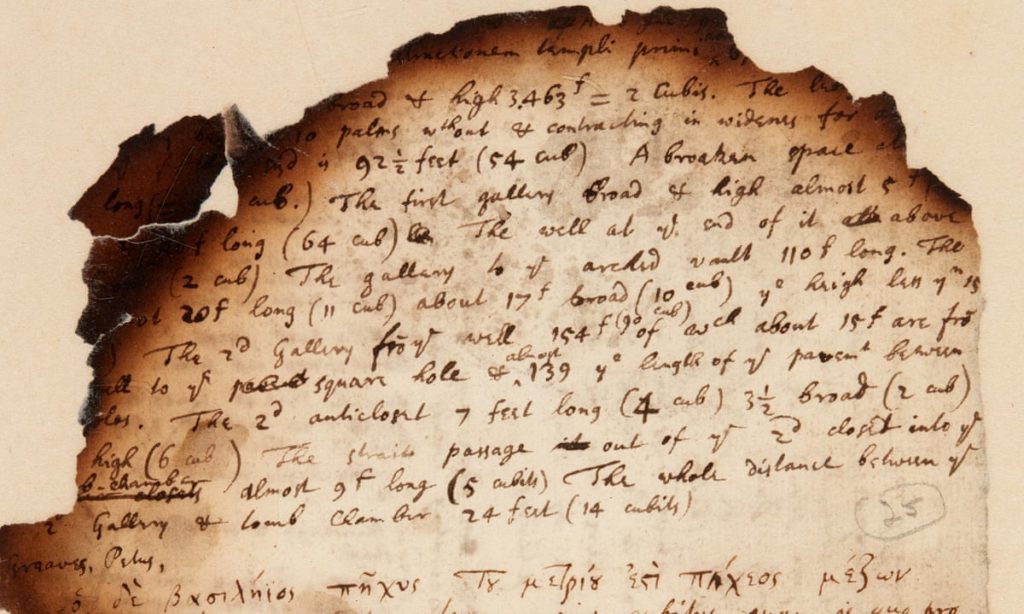 ructionem templi primi
broad & high 3.463f = 2 Cubis. The
10 palms wthout & contracting in widenes for
end is 92½ feet (54 cub) A broaken space
long ( cub.) The first gallery broad & high almost 5f,
f long (64 cub) The well at ye end of it above
(2 cub) The gallery to ye arched vault 110f long. The
20f long (11 cub) about 17f broad (10 cub) ye heigh less yn 15
) The 2d Gallery frō ye well 154f (90 cub) of wch about 15f are frō
to ye square hole & almost 139 ye length of ye pavemt between
les. The 2d anticloset 7 feet long (4 cub) 3½ broad (2 cub)
high (6 cub) The strait passage out of ye 2d closet into ye
almost 9f long (5 cubits) The whole distance between ye
2 Gallery & tomb Chamber 24 feet (14 cubits)
25
Greaves, Petus,
ὁ δὲ βασιλήιος πῆχυς τοῦ μετρίου ἐστὶ πήχεος μέζων